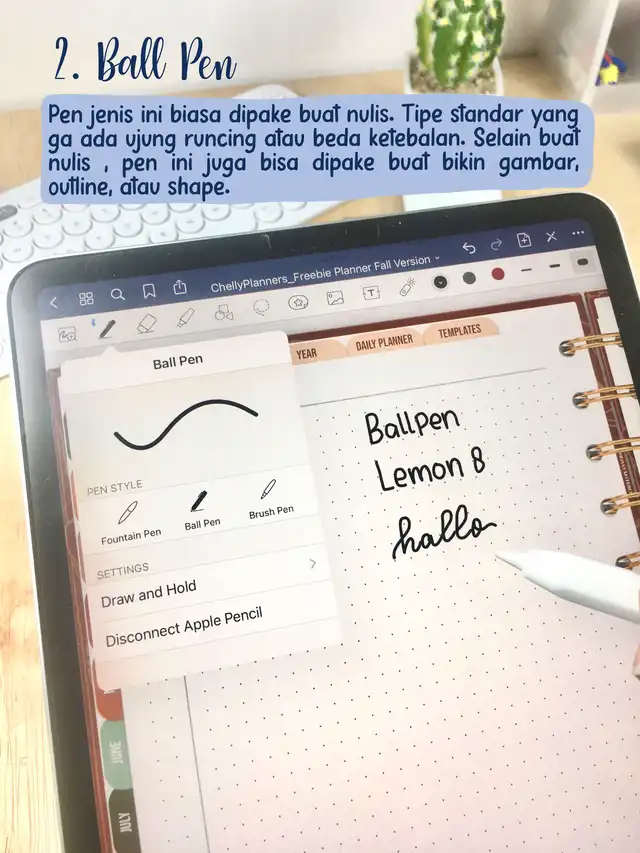 2. Ball Pen
Pen jenis ini biasa dipake buat nulis. Tipe standar yang
ga ada ujung runcing atau beda ketebalan. Selain buat
nulis , pen ini juga bisa dipake buat bikin gambar,
outline, atau shape.
ChellyPlanners_Freebie Planner Fall Version
T
Ball Pen
YEAR
DAILY PLANNER
TEMPLATES
BallPen
Lemon 8
hallo
PEN STYLE
Fountain Pen
Ball Pen
Brush Pen
SETTINGS
Draw and Hold
Disconnect Apple Pencil
JUNE
JULY